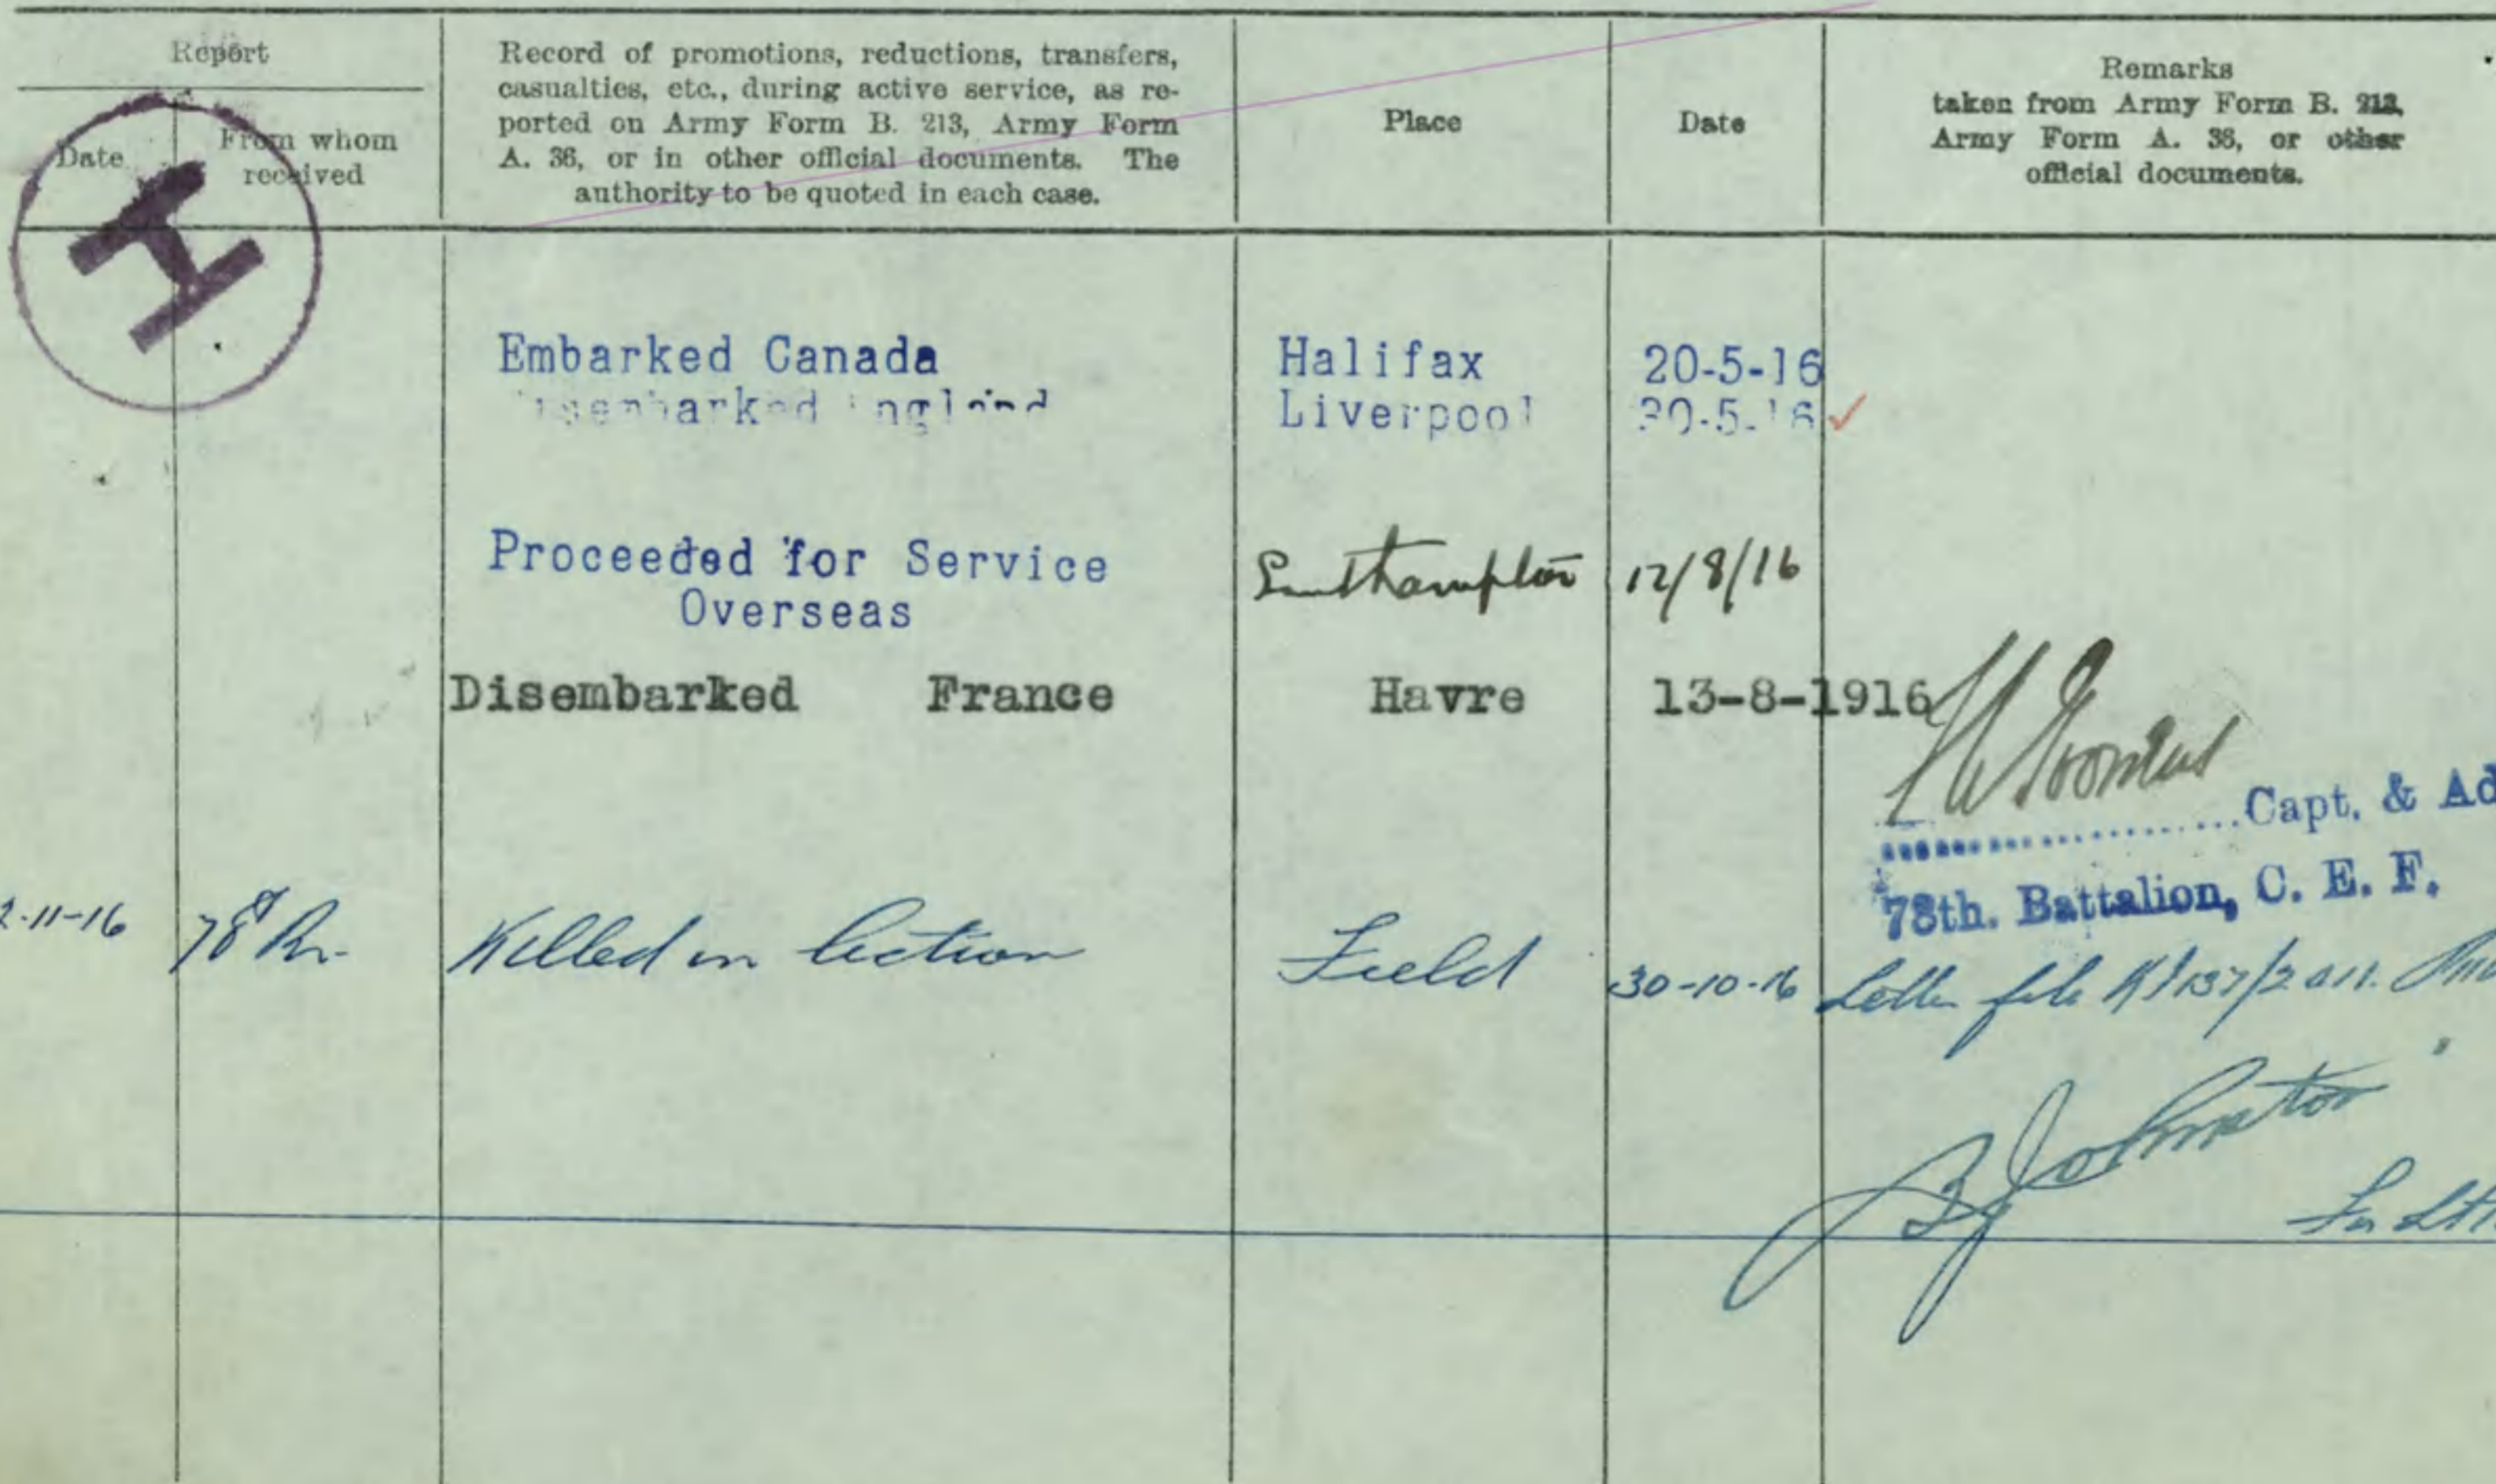 Report
Date
From whom
received
Record of promotions, reductions, transfers,
casualties, etc., during active service, as re-
ported on Army Form B. 213, Army Form
A. 36, or in other official documents. The
authority to be quoted in each case.
Place
Date
Remarks
taken from Army Form B. 213,
Army Form A. 36, or other
official documents.
H
Embarked Canada Halifax 20-5-16
Disembarked England Liverpool 30-5-16 ✓
Proceeded for Service
Overseas
Southampton 12/8/16
Disembarked France Havre 13-8-1916
Capt. & Ad
78th. Battalion, C. E. F.
2-11-16 78th Bn. Killed in Action Field 30-10-16 Letter file
Johnston